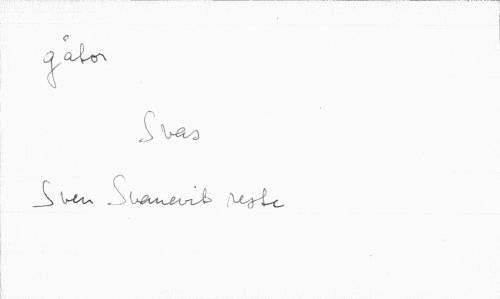 gåtor
Svas
Sven Svanevit reste